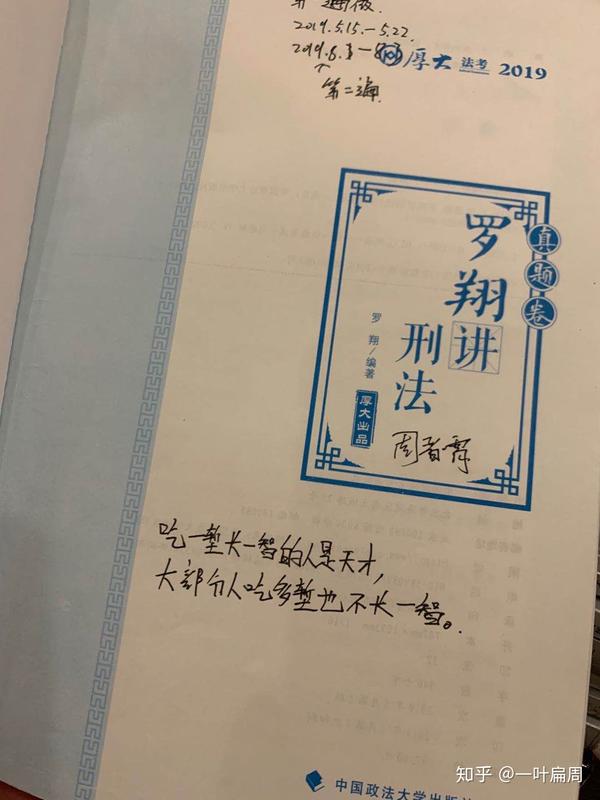 第一遍做
2019.5.15—5.22.
2019.8.1—8.3
↑
第二遍
厚大法考 2019
真题卷
罗翔讲
刑法
罗翔/编著
厚大出品
吃一堑长一智的人是天才，
大部分人吃多堑也不长一智。
中国政法大学出版社
知乎 @一叶扁周